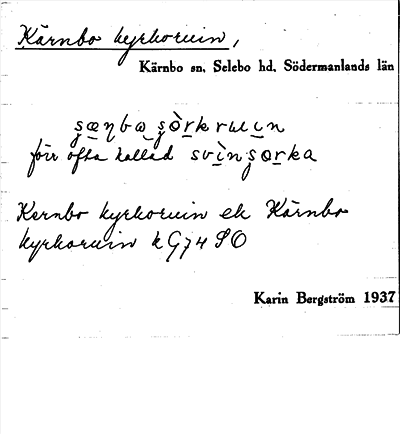 Kärnbo kyrkoruin,
Kärnbo sn, Selebo hd, Södermanlands län
förr ofta kallad
Kernbo kyrkoruin el. Kärnbo
kyrkoruin k G74 SO
Karin Bergström 1937